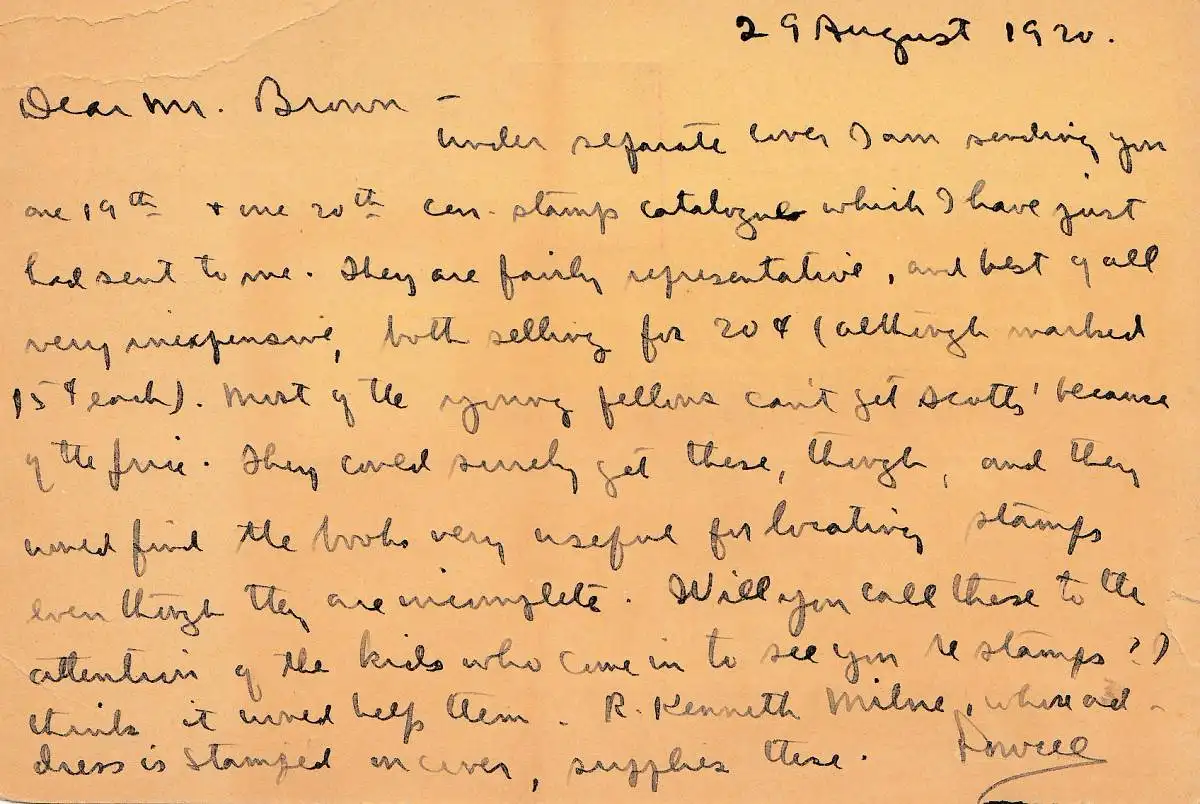 29 August 1920.
Dear Mr. Brown –
Under separate cover I am sending you
one 19th & one 20th cen. stamp catalogue which I have just
had sent to me. They are fairly representative, and best of all
very inexpensive, both selling for 20¢ (although marked
15¢ each). Most of the young fellows can't get Scotts' because
of the price. They could surely get these, though, and they
would find the books very useful for locating stamps
even though they are incomplete. Will you call these to the
attention of the kids who come in to see you re stamps? I
think it would help them. R. Kenneth Milne, whose ad-
dress is stamped on cover, supplies these. Powell